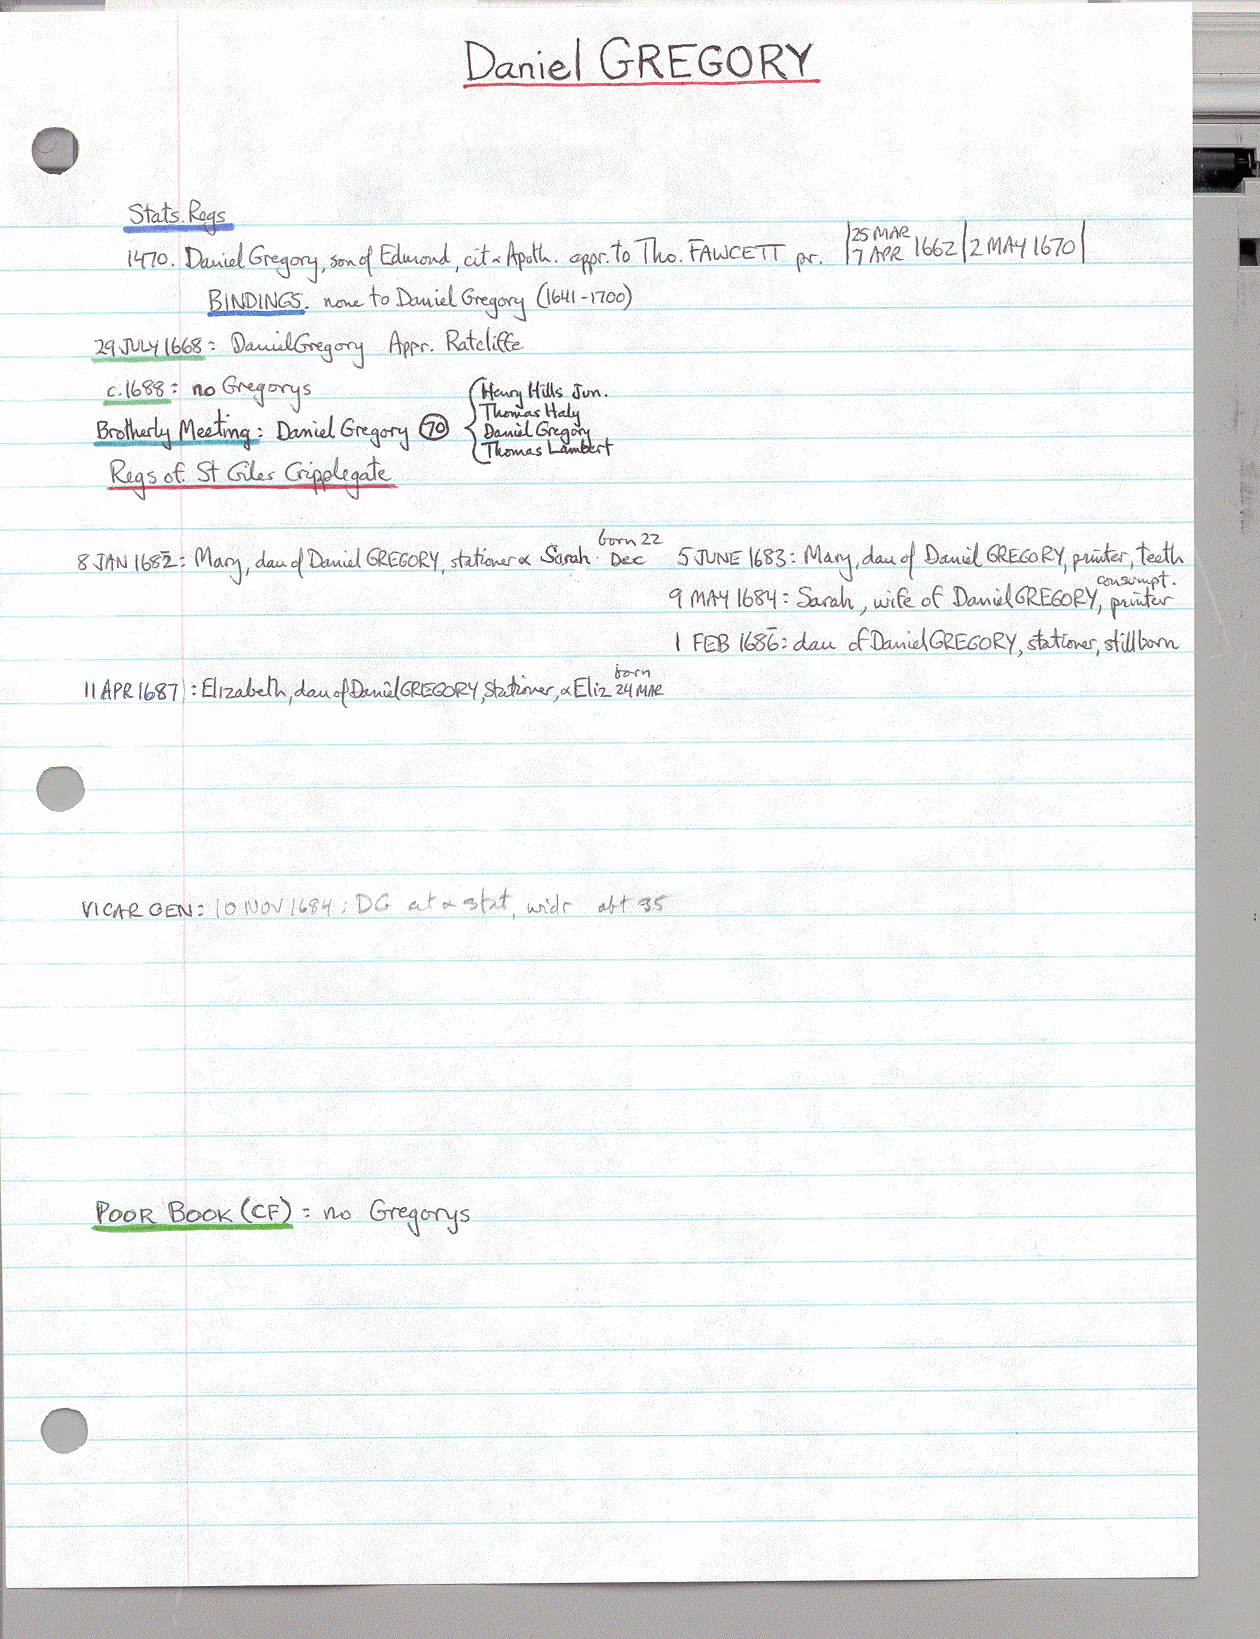 Daniel GREGORY
Stats. Regs
1470. Daniel Gregory, son of Edmond, cit & Apoth. appr. to Tho. FAWCETT pr. |25 MAR 7 APR 1662|2 MAY 1670|
BINDINGS. none to Daniel Gregory (1641-1700)
29 JULY 1668: Daniel Gregory Appr. Ratcliffe
c.1688: no Gregorys
Brotherly Meeting: Daniel Gregory 70
Henry Hills Jun.
Thomas Haly
Daniel Gregory
Thomas Lambert
Regs of St Giles Cripplegate
8 JAN 1682: Mary, dau of Daniel GREGORY, stationer & Sarah. born 22 Dec
5 JUNE 1683: Mary, dau of Daniel GREGORY, printer, teeth
9 MAY 1684: Sarah, wife of Daniel GREGORY, printer consumpt.
1 FEB 1686: dau of Daniel GREGORY, stationer, stillborn
11 APR 1687: Elizabeth, dau of Daniel GREGORY, stationer, & Eliz born 24 MAR
VICAR GEN: 10 NOV 1684; DG & stat, widr abt 35
POOR BOOK (CF) = no Gregorys